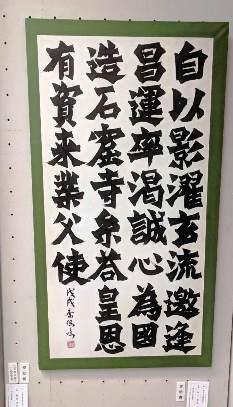 自以影濯玄流邀逢
昌運率渴誠心為國
造石窟寺系荅皇恩
有資来業父使
戊戌